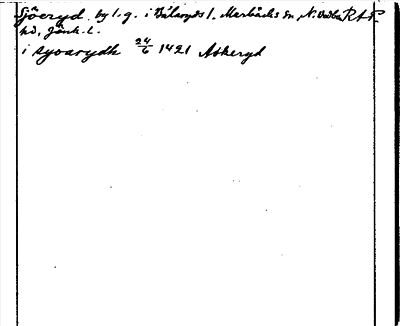 Sjöeryd by l. g. i Bälaryds s. Marbäcks sn, N. Vedbo RAP.
hd, Jönk. l.
i syoarydh 24/6 1421 Askeryd